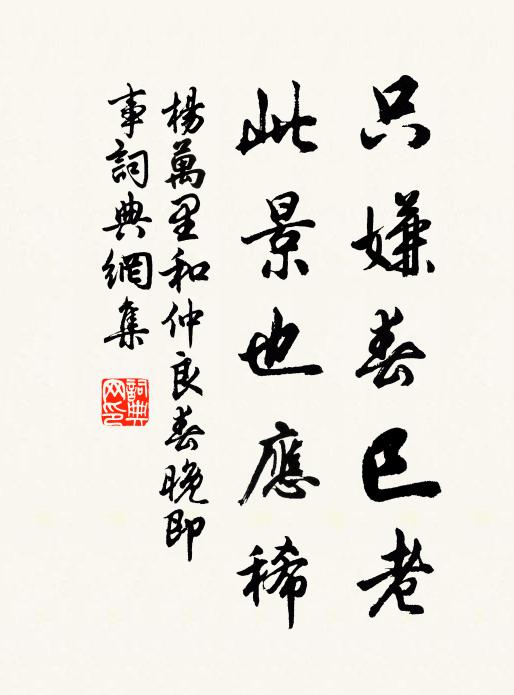 只嫌春已老
此景也應稀
楊萬里和仲良春晚即
事詞典網集
詞典
网印